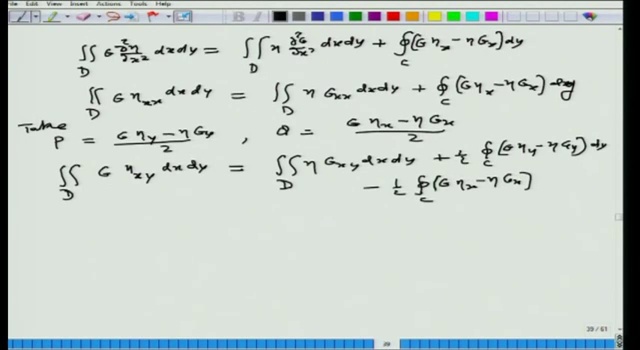 File Edit View Insert Actions Tools Help
∬_D G ∂²η/∂x² dxdy = ∬_D η ∂²G/∂x² dxdy + ∮_C (G η_x − η G_x) dy
∬_D G η_xx dxdy = ∬_D η G_xx dxdy + ∮_C (G η_x − η G_x) dy
Take P = (G η_y − η G_y)/2 , Q = (G η_x − η G_x)/2
∬_D G η_xy dxdy = ∬_D η G_xy dxdy + ½ ∮_C (G η_y − η G_y) dy
− ½ ∮_C (G η_x − η G_x)
29 / 61
39